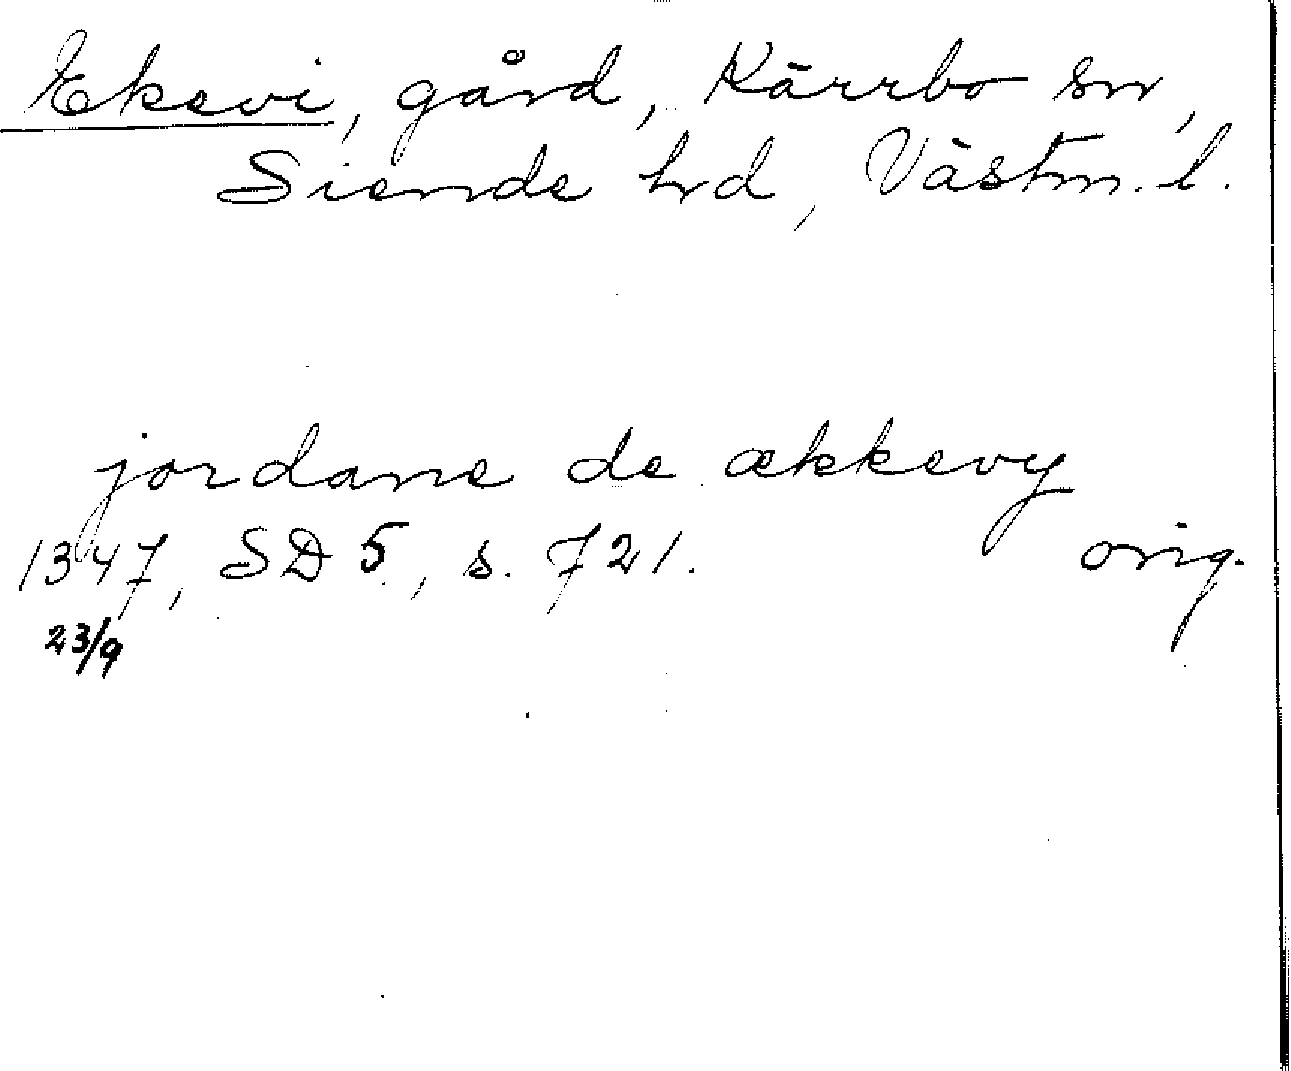 Ekevi, gård, Kärrbo sn,
Siende hrd, Västm. l.
jordane de ækkevy
1347, SD 5, s. 721. orig.
23/9